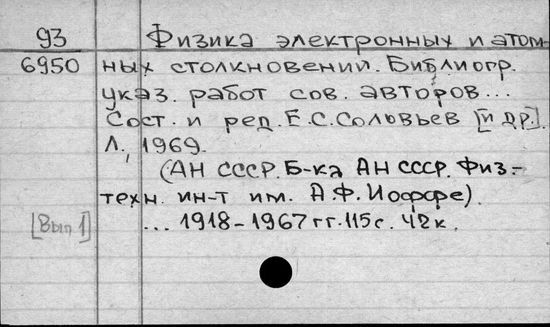 93 Физика электронных и атом-
6950 ных столкновений. Библиогр.
указ. работ сов. авторов...
Сост. и ред. Е.С. Соловьев [и др.].
Л., 1969.
(АН СССР. Б-ка АН СССР. Физ.-
техн. ин-т им. А.Ф. Иоффе).
[Вып 1] ... 1918-1967 гг. 115 с. 42 к.